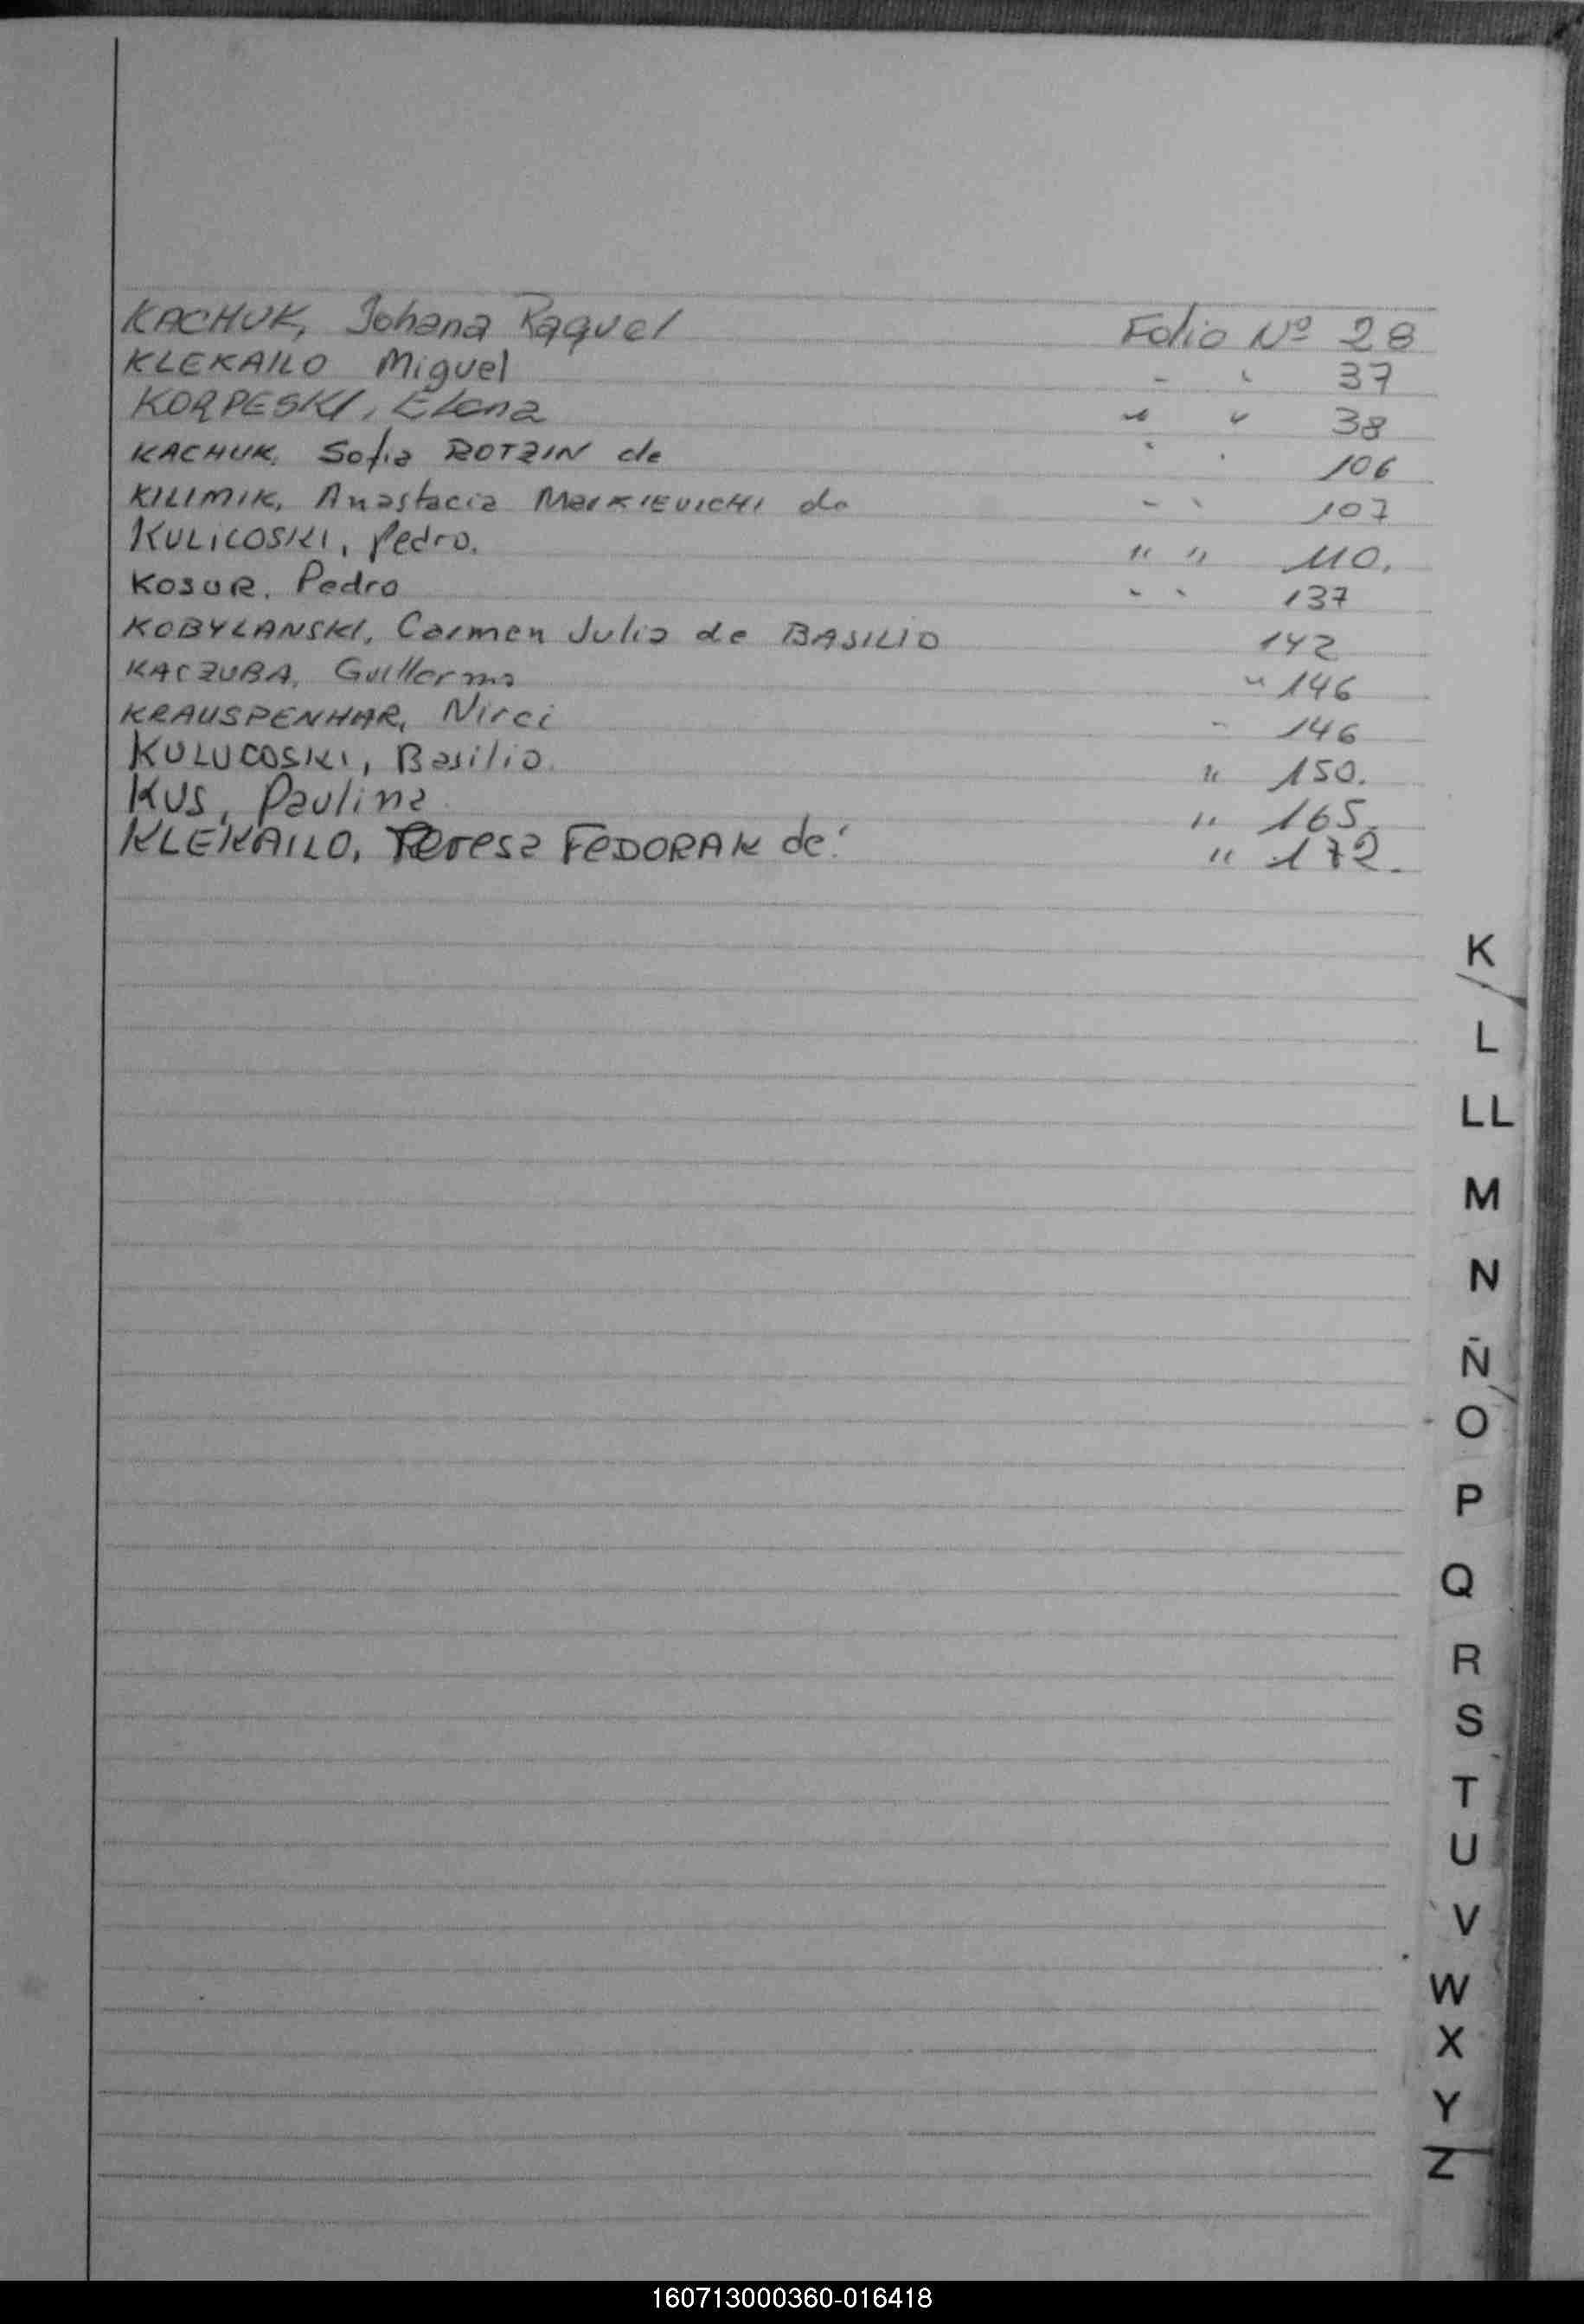 KACHUK, Johana Raquel Folio Nº 28
KLEKAILO Miguel - " 37
KORPESKI, Elena " " 38
KACHUK, Sofia ROTZIN de " " 106
KILIMIK, Anastacia MarKIEVICHI de - " 107
KULICOSKI, Pedro. " " 110.
KOSUR, Pedro " " 137
KOBYLANSKI, Carmen Julia de BASILIO 142
KACZUBA, Guillermo " 146
KRAUSPENHAR, Nirci - 146
KULUCOSKI, Basilio. " 150.
KUS, Paulina. " 165.
KLEKAILO, Teresa FEDORAK de. " 172.
K
L
LL
M
N
Ñ
O
P
Q
R
S
T
U
V
W
X
Y
Z
160713000360-016418